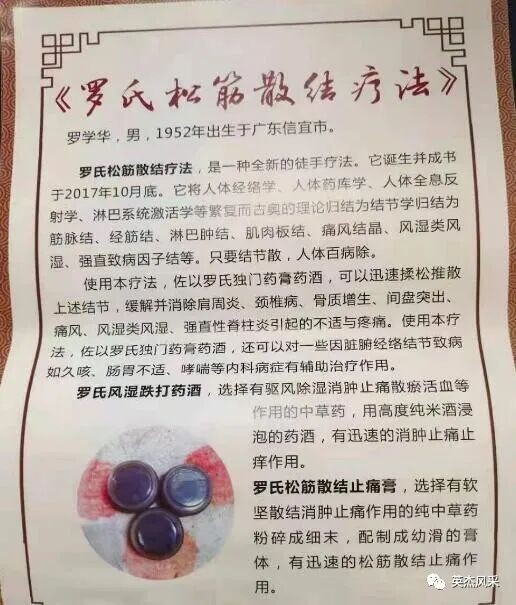 《罗氏松筋散结疗法》
罗学华，男，1952年出生于广东信宜市。
罗氏松筋散结疗法，是一种全新的徒手疗法。它诞生并成书
于2017年10月底。它将人体经络学、人体药库学、人体全息反
射学、淋巴系统激活学等繁复而古奥的理论归结为结节学归结为
筋脉结、经筋结、淋巴肿结、肌肉板结、痛风结晶、风湿类风
湿、强直致病因子结等。只要结节散，人体百病除。
使用本疗法，佐以罗氏独门药膏药酒，可以迅速揉松推散
上述结节，缓解并消除肩周炎、颈椎病、骨质增生、间盘突出、
痛风、风湿类风湿、强直性脊柱炎引起的不适与疼痛。使用本疗
法，佐以罗氏独门药膏药酒，还可以对一些因脏腑经络结节致病
如久咳、肠胃不适、哮喘等内科病症有辅助治疗作用。
罗氏风湿跌打药酒，选择有驱风除湿消肿止痛散瘀活血等
作用的中草药，用高度纯米酒浸
泡的药酒，有迅速的消肿止痛止
痒作用。
罗氏松筋散结止痛膏，选择有软
坚散结消肿止痛作用的纯中草药
粉碎成细末，配制成幼滑的膏
体，有迅速的松筋散结止痛作
用。
英杰风采